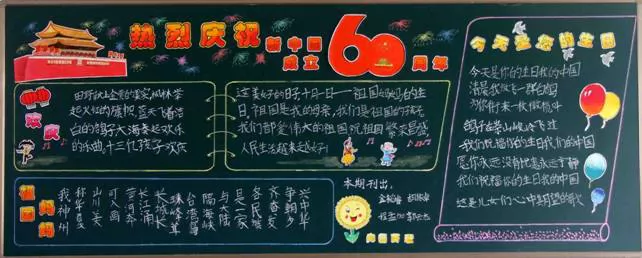 热烈庆祝
新中国
成立
60
周年
欢庆
田野铺上金黄的果实,枫林举
起火红的旗帜,蓝天飞着洁
白的鸽子,大海奏起欢乐
的乐曲,十三亿孩子欢庆
这美好的日子十月一日——祖国妈妈的生
日,祖国是我的母亲,我们是祖国的孩子
我们都爱伟大的祖国,祝祖国繁荣昌盛,
人民生活越来越好!
今天是你的生日
今天是你的生日我的中国
清晨我放飞一群白鸽
为你衔来一枚橄榄叶
鸽子在崇山峻岭飞过
我们祝福你的生日我的中国
愿你永远没有忧患永远宁静
我们祝福你的生日我的中国
这是儿女们心中期望的歌
祖国妈妈
我神州
称华夏
山川美
可入画
黄河奔
长江涌
长城长
珠峰耸
台湾岛
隔海峡
与大陆
是一家
各民族
齐奋发
争朝夕
兴中华
本期刊出: